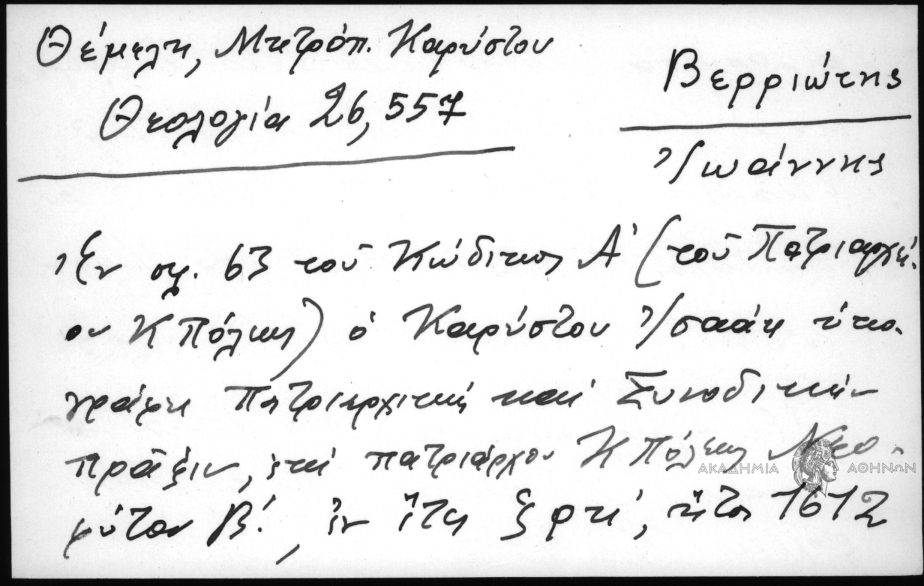 Θέμελη, Μητρόπ. Καρύστου
Θεολογία 26, 557
Βερριώτης
Ἰωάννης
Ἐν σελ. 63 τοῦ Κώδικος Α' (τοῦ Πατριαρχεί-
ου ΚΠόλεως) ὁ Καρύστου Ἰσαάκ ὑπο-
γράφει Πατριαρχικήν καί Συνοδικήν
πρᾶξιν, ἐπί πατριάρχου ΚΠόλεως Νεο-
φύτου Β', ἐν ἔτει ζρκ', ἤτοι 1612
ΑΚΑΔΗΜΙΑ ΑΘΗΝΩΝ